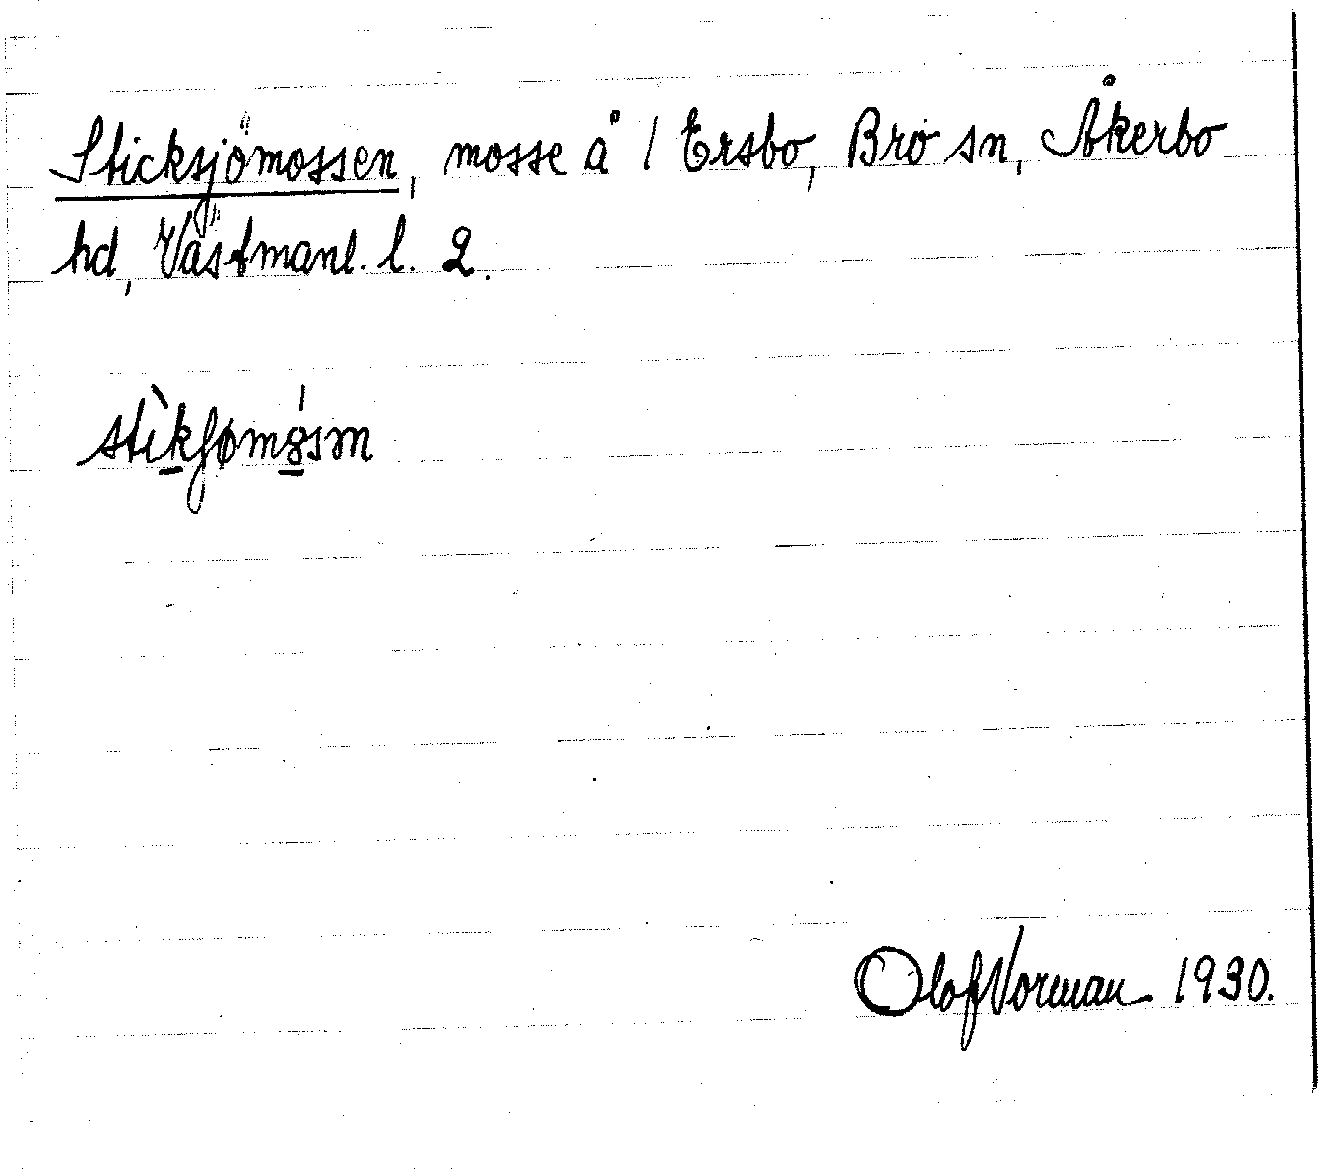 Sticksjömossen, mosse å / Ersbo, Bro sn, Åkerbo
hd, Västmanl. l. 2.
stìkʃømꞵ́sən
Olof Norman 1930.